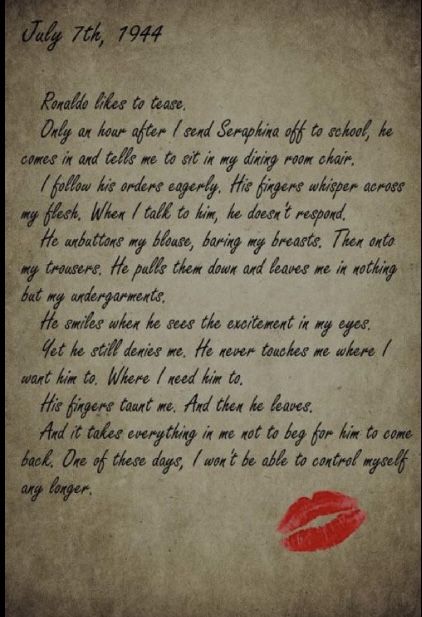 July 7th, 1944
Ronaldo likes to tease.
Only an hour after I send Seraphina off to school, he
comes in and tells me to sit in my dining room chair.
I follow his orders eagerly. His fingers whisper across
my flesh. When I talk to him, he doesn't respond.
He unbuttons my blouse, baring my breasts. Then onto
my trousers. He pulls them down and leaves me in nothing
but my undergarments.
He smiles when he sees the excitement in my eyes.
Yet he still denies me. He never touches me where I
want him to. Where I need him to.
His fingers taunt me. And then he leaves.
And it takes everything in me not to beg for him to come
back. One of these days, I won't be able to control myself
any longer.